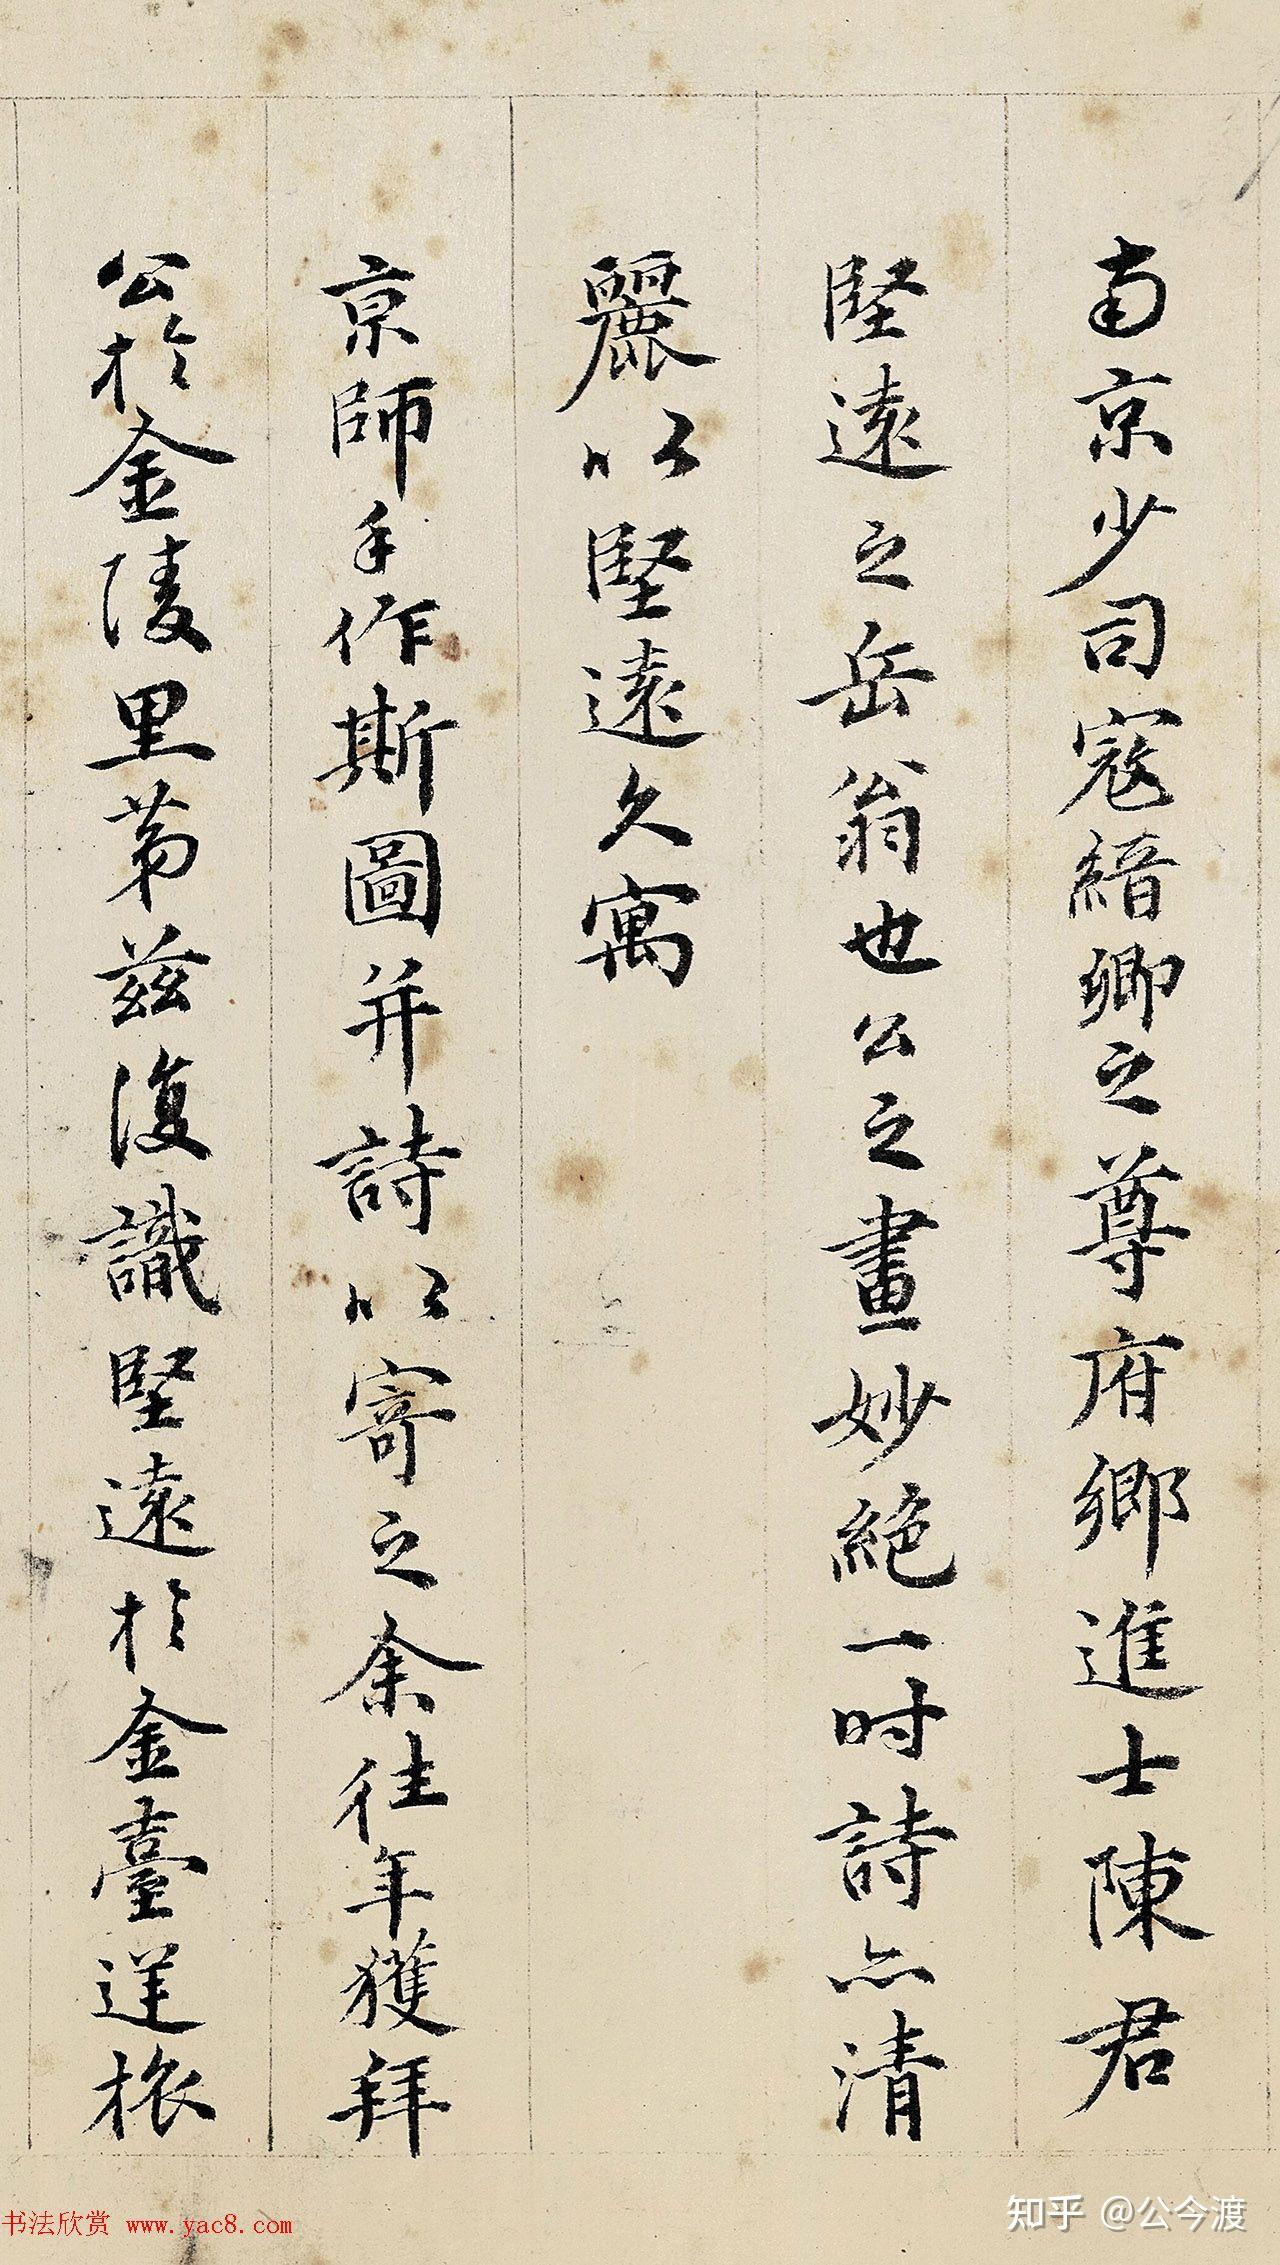 南京少司寇縉卿之尊府鄉進士陳君
堅遠之岳翁也公之畫妙絕一时詩亦清
麗以堅遠久寓
京師手作斯圖并詩以寄之余往年獲拜
公於金陵里苐兹復識堅遠於金臺逆旅
书法欣赏 www.yac8.com
知乎 @公今渡